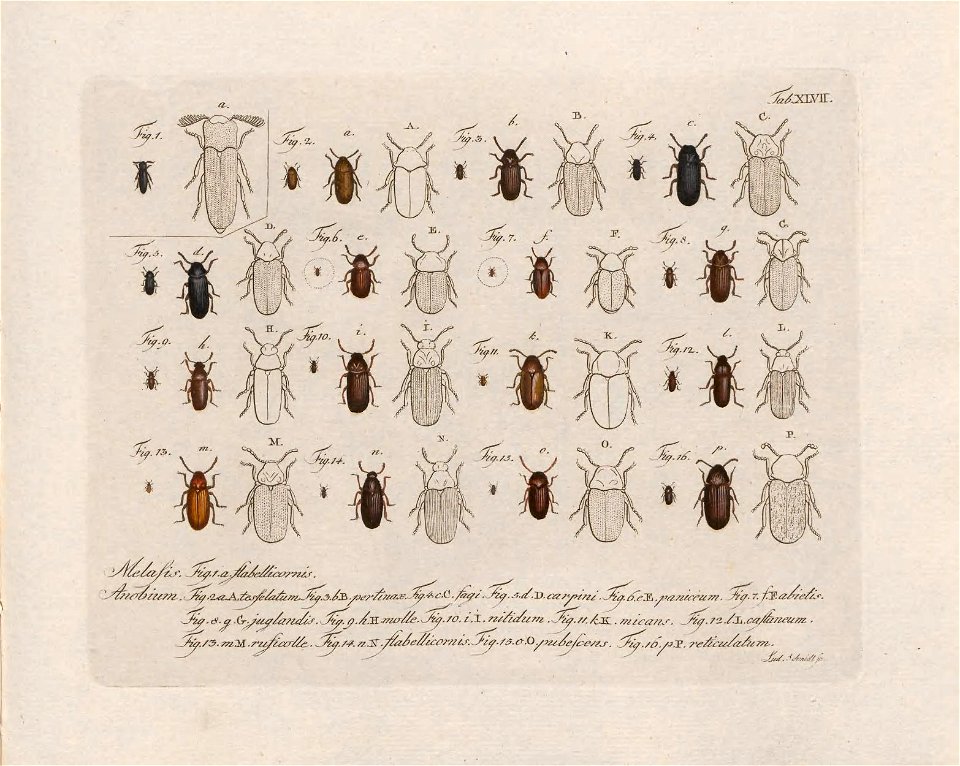 Tab. XLVII.
Fig. 1. a. Fig. 2. a. A. Fig. 3. b. B. Fig. 4. c. C.
Fig. 5. d. D. Fig. 6. e. E. Fig. 7. f. F. Fig. 8. g. G.
Fig. 9. h. H. Fig. 10. i. I. Fig. 11. k. K. Fig. 12. l. L.
Fig. 13. m. M. Fig. 14. n. N. Fig. 15. o. O. Fig. 16. p. P.
Melaſis. Fig. 1. a. flabellicornis.
Anobium. Fig. 2. a. A. teſselatum. Fig. 3. b. B. pertinax. Fig. 4. c. C. fagi. Fig. 5. d. D. carpini. Fig. 6. e. E. paniceum. Fig. 7. f. F. abietis.
Fig. 8. g. G. juglandis. Fig. 9. h. H. molle. Fig. 10. i. I. nitidum. Fig. 11. k. K. micans. Fig. 12. l. L. caſtaneum.
Fig. 13. m. M. ruficolle. Fig. 14. n. N. flabellicornis. Fig. 15. o. O. pubeſcens. Fig. 16. p. P. reticulatum.
Lud. Schmidt ſc.